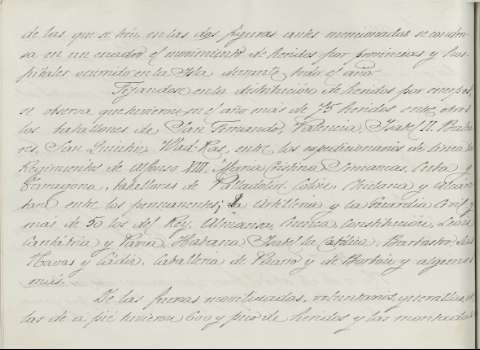 de las que se trón en las dos figuras antes mencionadas se conser
va en un cuadro el movimiento de heridos por provincias y hos
pitales ocurrido en la Isla durante todo el año.
Fijandose en la distribución de heridos por cuerpos,
se observa que tuvieron en el año más de 75 heridos entre otros
los batallones de San Fernando, Valencia, Isabel II,
San Quintín Wad-Ras, entre los expedicionarios de linea los
Regimientos de Alfonso XIII, Maria Cristina Simancas, Cuba y
Tarragona, batallones de Valladolid, Colón, Chiclana y
entre los permanentes; la Artilleria y la Guardia Civil y
más de 50 los del Rey, Almansa, Cuenca, Constitución, León
Cantabria y Pavia, Habana Isabel la Católica, Barbastro, las
Navas y Cádiz, Caballeria de Pizarro y de Borbón y algunos
más.
De las fuerzas movilizadas, voluntarios y guerrillas,
las de a pié tuvieron 600 y pico de heridos y las montadas